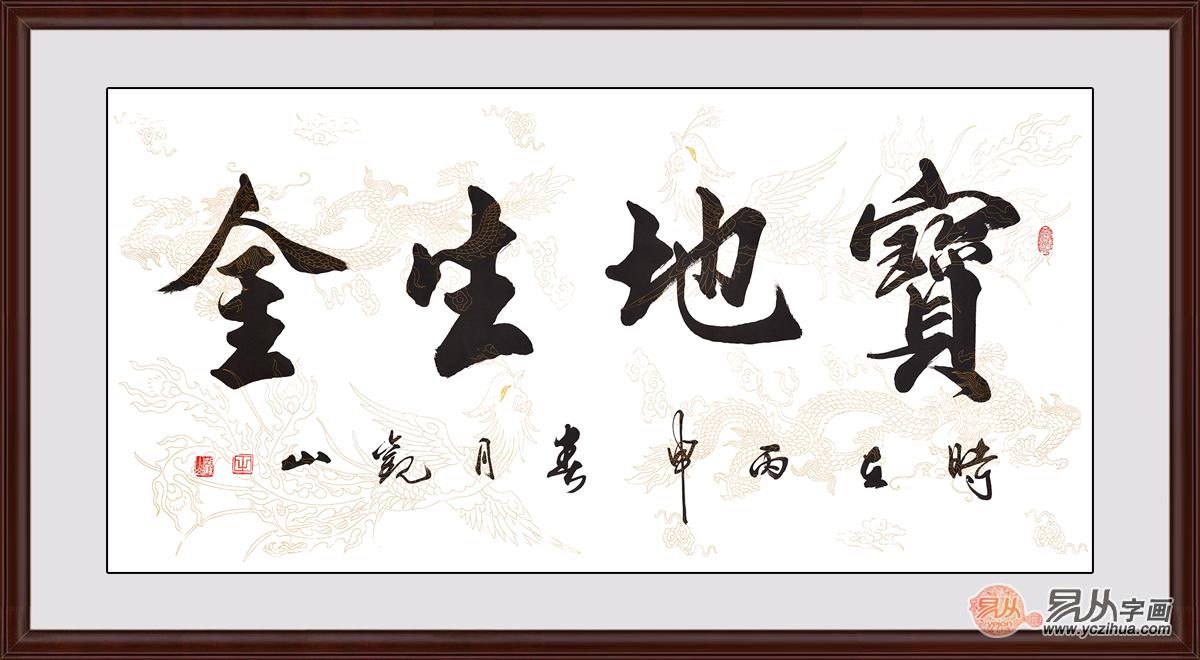 寶地生金
時在丙申春月觀山
易从
yejon
易从字画
www.yczihua.com